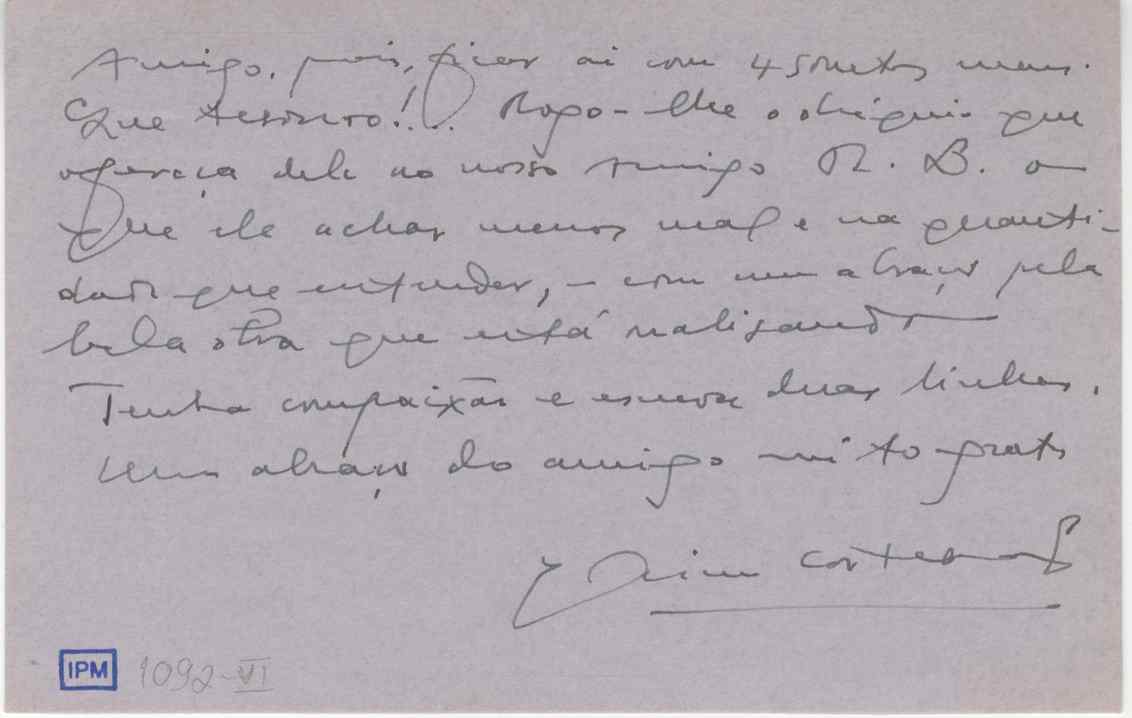 Amigo, pois, ficar aí com 4 sonetos meus.
Que tesouro!... Rogo-lhe o obséquio que
ofereça dele ao nosso Amigo R. B. o
que ele achar menos mal e na quanti-
dade que entender, - com um abraço pela
bela obra que está realisando
Tenha compaixão e escreva duas linhas.
Um abraço do amigo mito grato
Jaime Cortesão
IPM 1092-VI